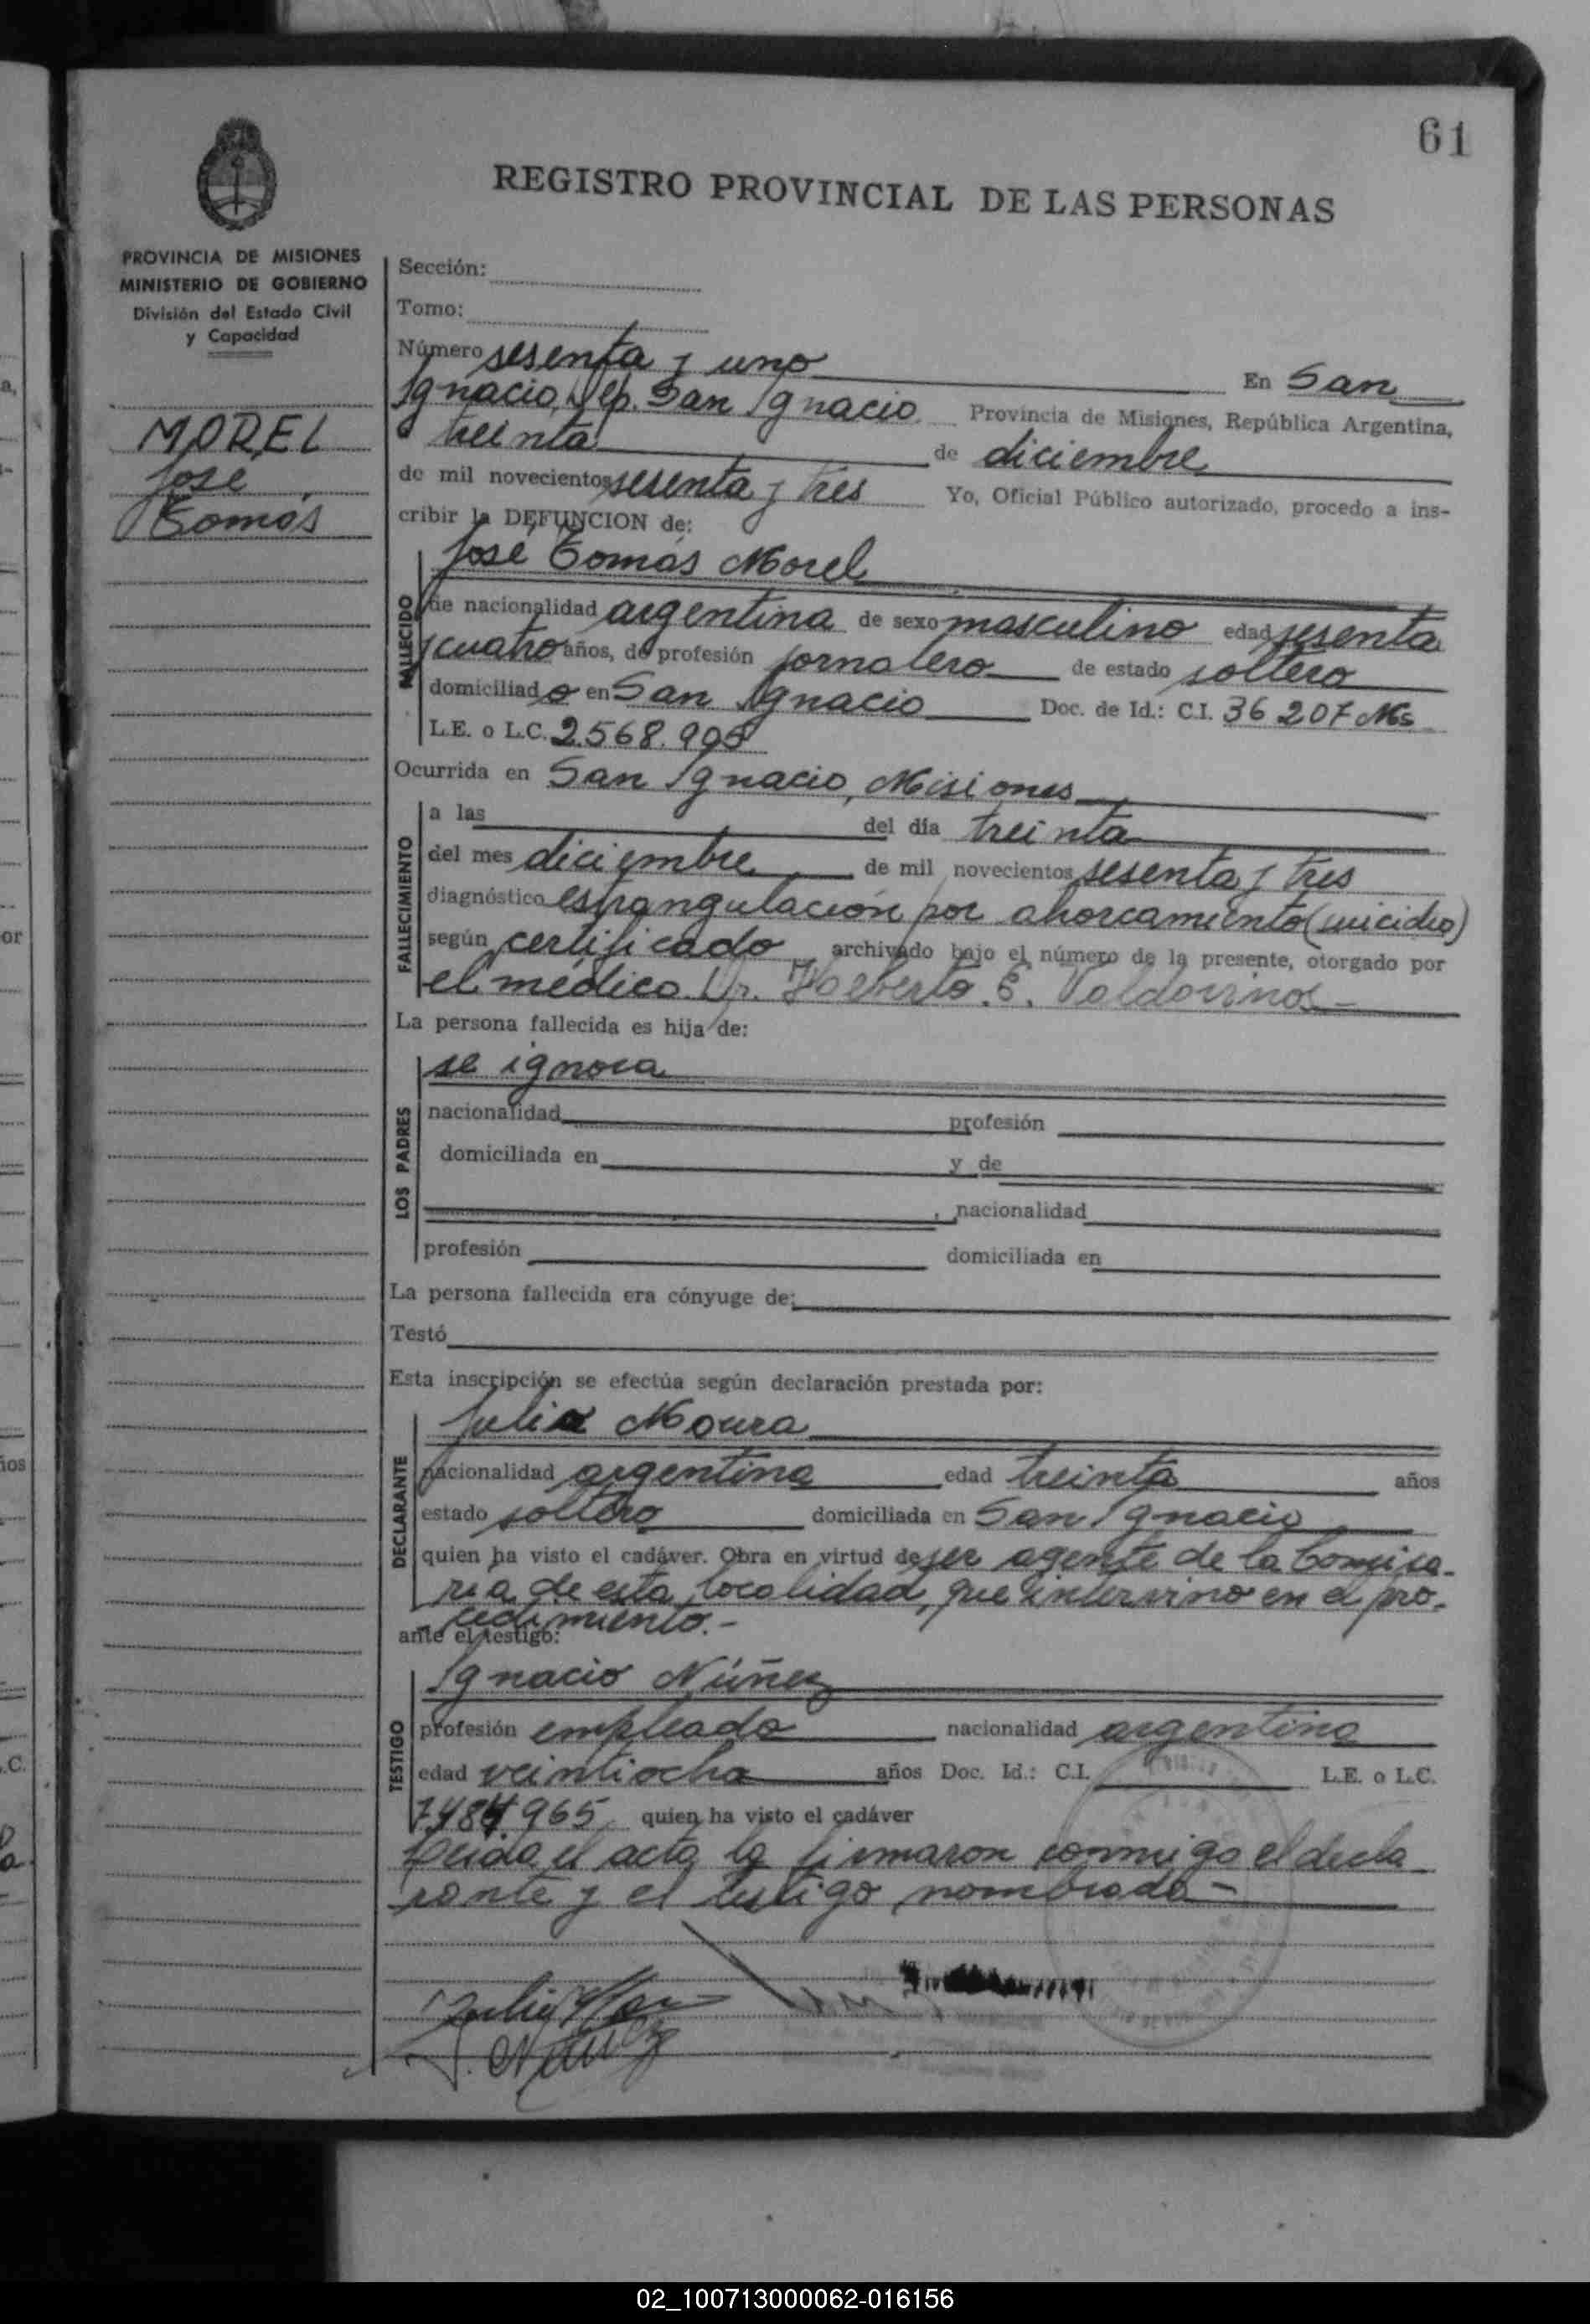 61
REGISTRO PROVINCIAL DE LAS PERSONAS
PROVINCIA DE MISIONES
MINISTERIO DE GOBIERNO
División del Estado Civil
y Capacidad
MOREL
José
Tomás
Sección:
Tomo:
Número sesenta y uno En San
Ignacio, Dep. San Ignacio Provincia de Misiones, República Argentina,
a treinta de diciembre
de mil novecientos sesenta y tres Yo, Oficial Público autorizado, procedo a ins-
cribir la DEFUNCION de:
José Tomás Morel
FALLECIDO
de nacionalidad argentina de sexo masculino edad sesenta
y cuatro años, de profesión jornalero de estado soltero
domiciliado en San Ignacio Doc. de Id.: C.I. 36207 Ms
L.E. o L.C. 2.568.995
Ocurrida en San Ignacio, Misiones
FALLECIMIENTO
a las del día treinta
del mes diciembre de mil novecientos sesenta y tres
diagnóstico estrangulación por ahorcamiento (suicidio)
según certificado archivado bajo el número de la presente, otorgado por
el médico Dr. E. Valdovinos
La persona fallecida es hija de:
LOS PADRES
se ignora
nacionalidad profesión
domiciliada en y de
, nacionalidad
profesión domiciliada en
La persona fallecida era cónyuge de:
Testó
Esta inscripción se efectúa según declaración prestada por:
DECLARANTE
Julio Moura
nacionalidad argentina edad treinta años
estado soltero domiciliada en San Ignacio
quien ha visto el cadáver. Obra en virtud de ser agente de la Comisa-
ría de esta localidad, que intervino en el pro-
cedimiento.-
ante el testigo:
TESTIGO
Ignacio Núñez
profesión empleado nacionalidad argentina
edad veintiocho años Doc. Id.: C.I. L.E. o L.C.
7.484.965 quien ha visto el cadáver
Leida el acta la firmaron conmigo el decla
rante y el testigo nombrado-
02_100713000062-016156